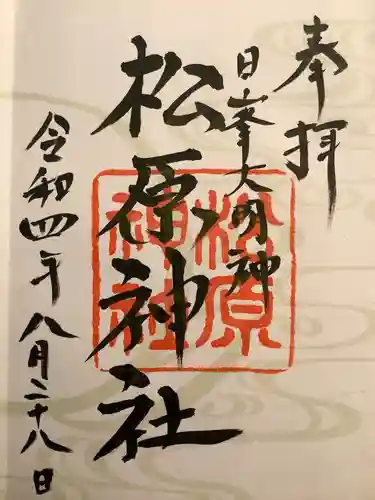 奉拝
日峯大明神
松原神社
松原
神社
令和四年八月二十八日